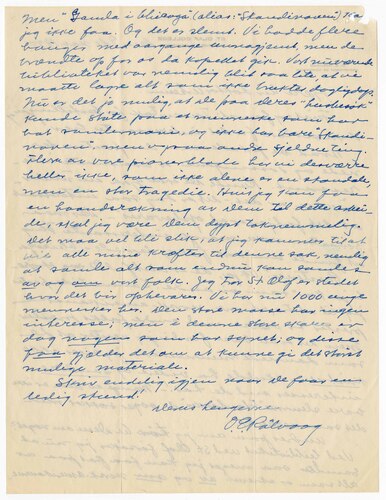 men "Gamla i Chicago" (alias: "Skandinaven") kan
jeg ikke faa. Og det er slemt. Vi hadde flere
aargange men de
brændte op for os da kapellet gik. Vort nuværende
bibliotek var nemlig blit saa lite, at vi
maatte lagre alt som ikke bruktes dagligdags.
Nu er det jo mulig, at De paa Deres
kunde støte paa et menneske som har
og ikke har bare "Skandi-
naven", men ogsaa andre
Flere av vore pionerblade har vi desværre
heller ikke, som ikke alene er en skandale,
men en stor tragedie. Hvis jeg kan faa
en haandsrækning av Dem til dette arbei-
de, skal jeg være Dem dypt taknemmelig.
Det maa vel bli slik, at jeg kommer til at
vie alle mine kræfter til denne sak, nemlig
at samle alt som endnu kan samles
av og om vort folk. Jeg tror St Olaf er stedet
hvor det bør opbevares. Vi har nu 1000 unge
mennesker her. Den store masse har ingen
interesse; men i denne store skare er
dog nogen som har synet, og disse
faa gjælder det om at kunne gi det størst
mulige materiale.
Skriv endelig igjen naar De faar en
ledig stund!
Deres hengivne
O. E. Rölvaag